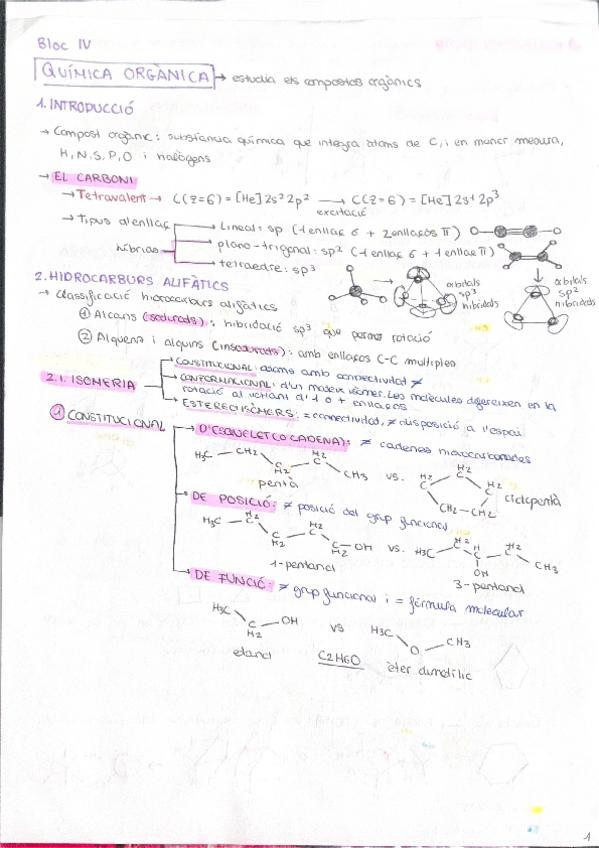 Bloc IV
QUÍMICA ORGÀNICA → estudia els compostos orgànics
1. INTRODUCCIÓ
→ Compost orgànic: substància química que integra àtoms de C, i en menor mesura,
H, N, S, P, O i halògens
→ EL CARBONI
→ Tetravalent → C(Z=6) = [He] 2s² 2p² → C(Z=6) = [He] 2s1 2p³
excitació
→ Tipus d'enllaç
híbrids
→ Lineal: sp (1 enllaç σ + 2 enllaços π)
→ plano-trigonal: sp² (1 enllaç σ + 1 enllaç π)
→ tetraedre: sp³
orbitals sp³ hibridats
orbitals sp² hibridats
2. HIDROCARBURS ALIFÀTICS
→ Classificació hidrocarburs alifàtics
① Alcans (saturats): hibridació sp³ que permet rotació
② Alquens i alquins (insaturats): amb enllaços C-C múltiples
2.1. ISOMERIA
CONSTITUCIONAL: àtoms amb connectividad ≠
CONFORMACIONAL: d'un mateix isòmer. Les molècules difereixen en la
rotació al voltant d'1 o + enllaços
ESTEREOISÒMERS: = connectividad, ≠ disposició a l'espai
① CONSTITUCIONAL
→ D'ESQUELET (O CADENA): ≠ cadenes hidrocarbonades
H3C CH2 C H2 H2 C CH3 vs. H2 C H2 C H2 C CH2 CH2 ciclopentà
pentà
→ DE POSICIÓ: ≠ posició del grup funcional
H3C H2 C C H2 H2 C C H2 OH vs. H3C H2 C H C OH H2 C CH3
1-pentanol
3-pentanol
→ DE FUNCIÓ: ≠ grup funcional i = fórmula molecular
H3C C H2 OH vs H3C O CH3
etanol
C2H6O
èter dimetílic
1